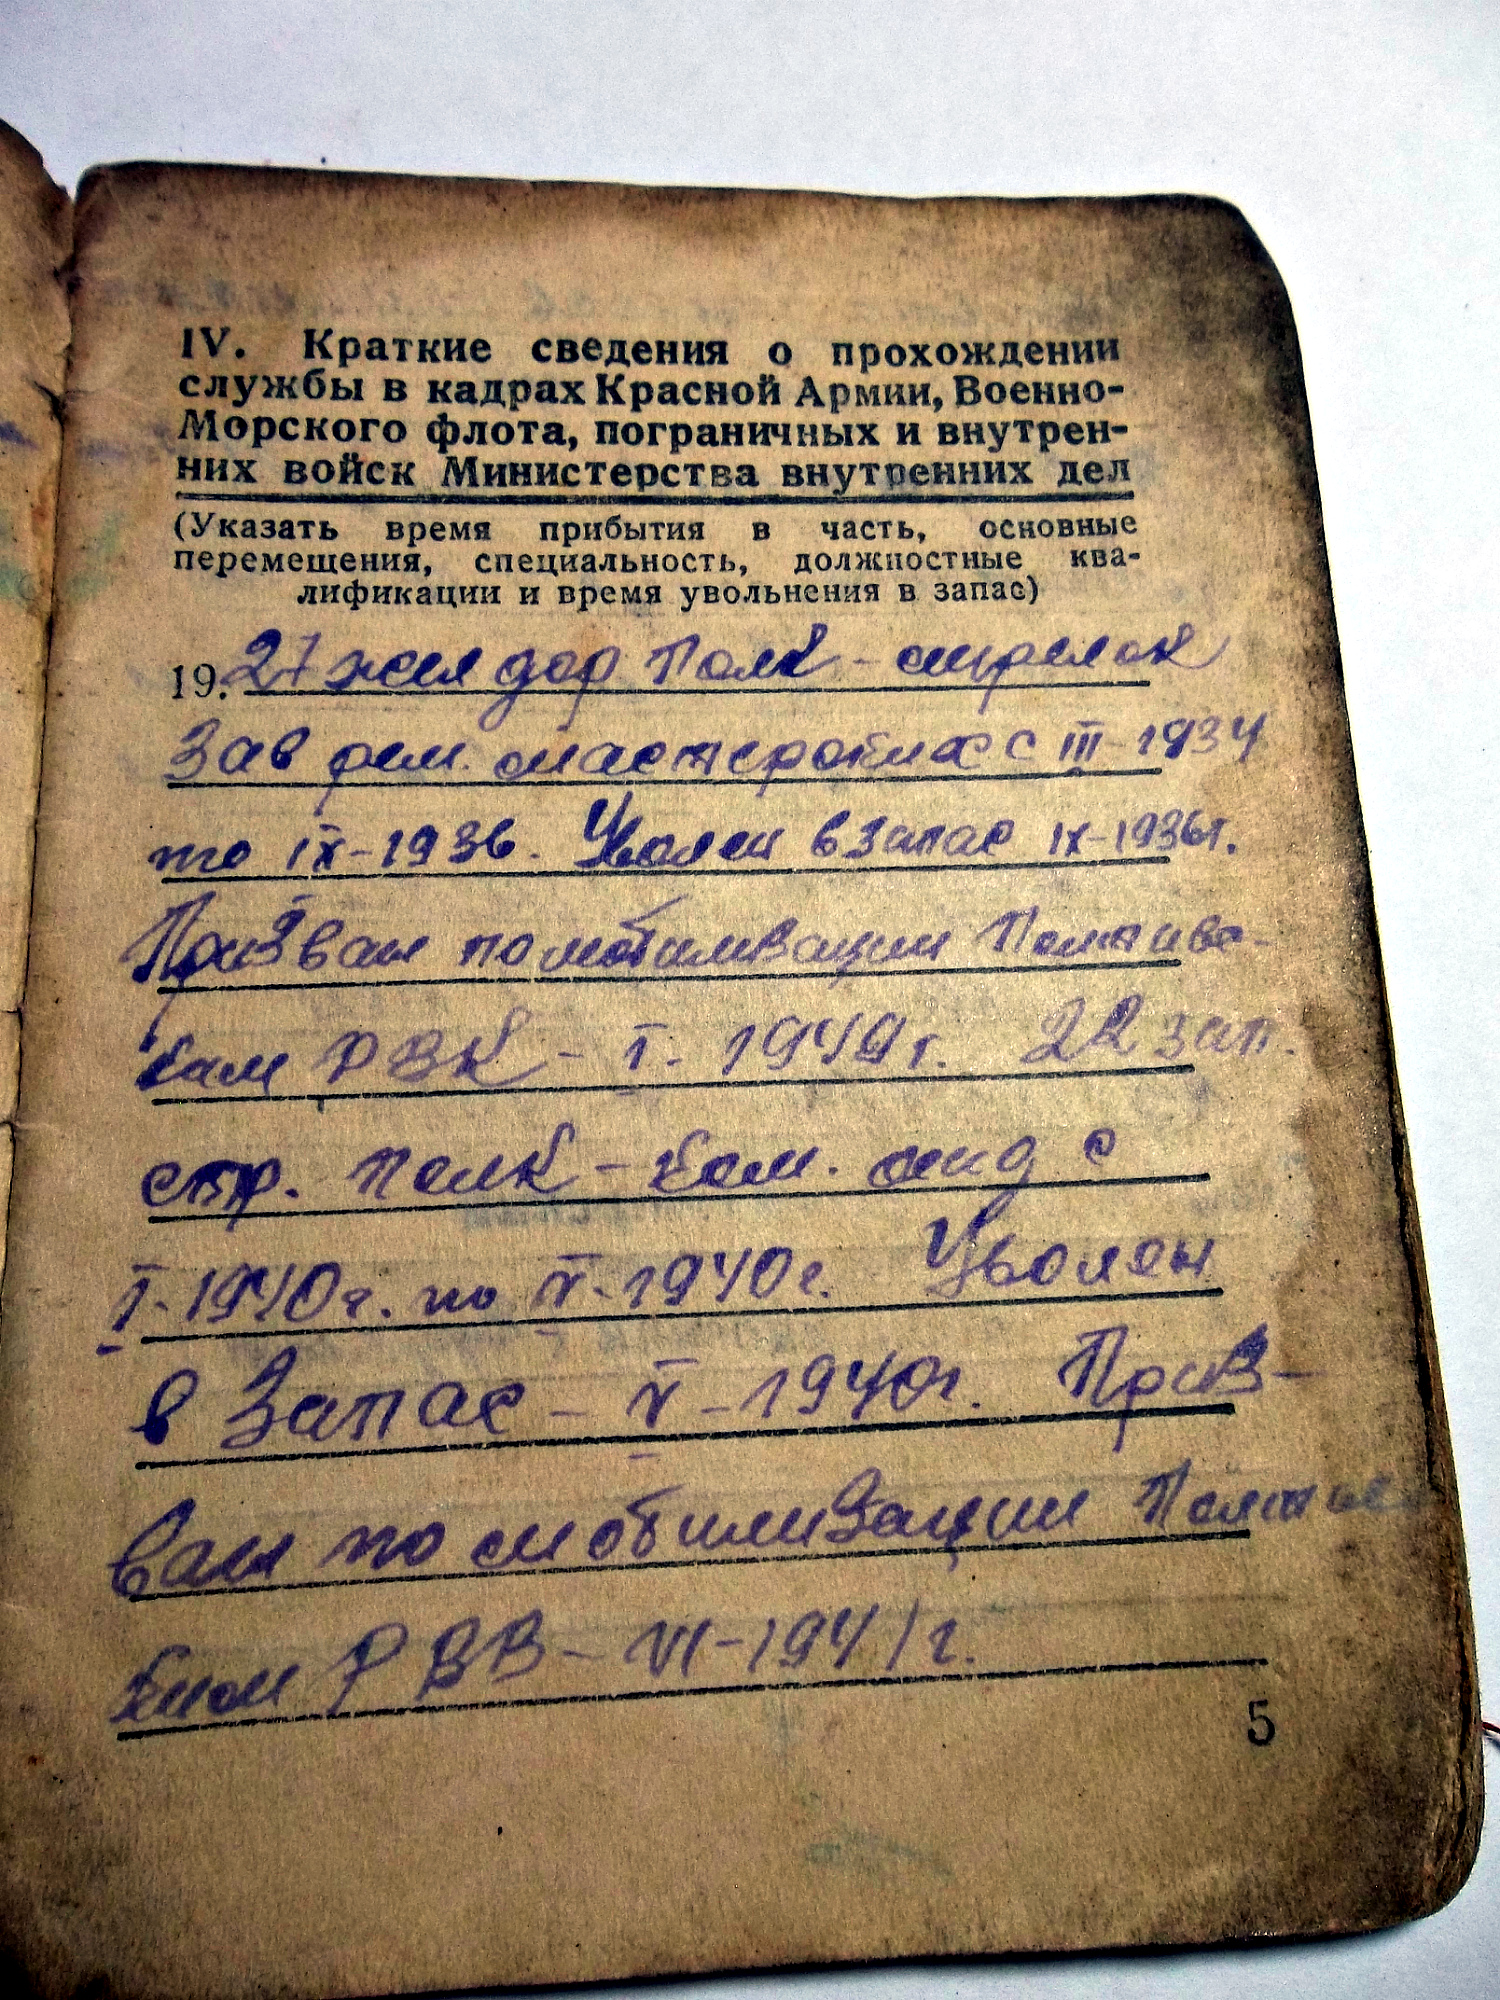 IV. Краткие сведения о прохождении
службы в кадрах Красной Армии, Военно-
Морского флота, пограничных и внутрен-
них войск Министерства внутренних дел
(Указать время прибытия в часть, основные
перемещения, специальность, должностные ква-
лификации и время увольнения в запас)
19. 27 жел дор полк - стрелок
Зав рем. мастерской с III-1934
по IX-1936. Уволен в запас IX-1936г.
Призван по мобилизации
ким РВК - I. 1940г. 22 зап.
стр. полк - ком. отд с
I-1940г. по V-1940г. Уволен
в Запас - V-1940г. Приз-
ван по мобилизации
ким РВК - VI-1941г.
5